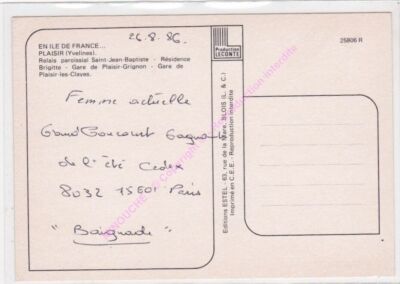 26.8.86.
EN ILE DE FRANCE...
PLAISIR (Yvelines).
Relais paroissial Saint-Jean-Baptiste - Résidence
Brigitte - Gare de Plaisir-Grignon - Gare de
Plaisir-les-Clayes.
Production
LECONTE
25806 R
Femme actuelle
Grand Concours Gagnant
de l'été Cedex
8032 75601 Paris
"Baignade"
Editions ESTEL - 63, rue de la Mare, BLOIS (L. & C.)
Imprimé en C.E.E. - Reproduction interdite
Copyright
Reproduction interdite